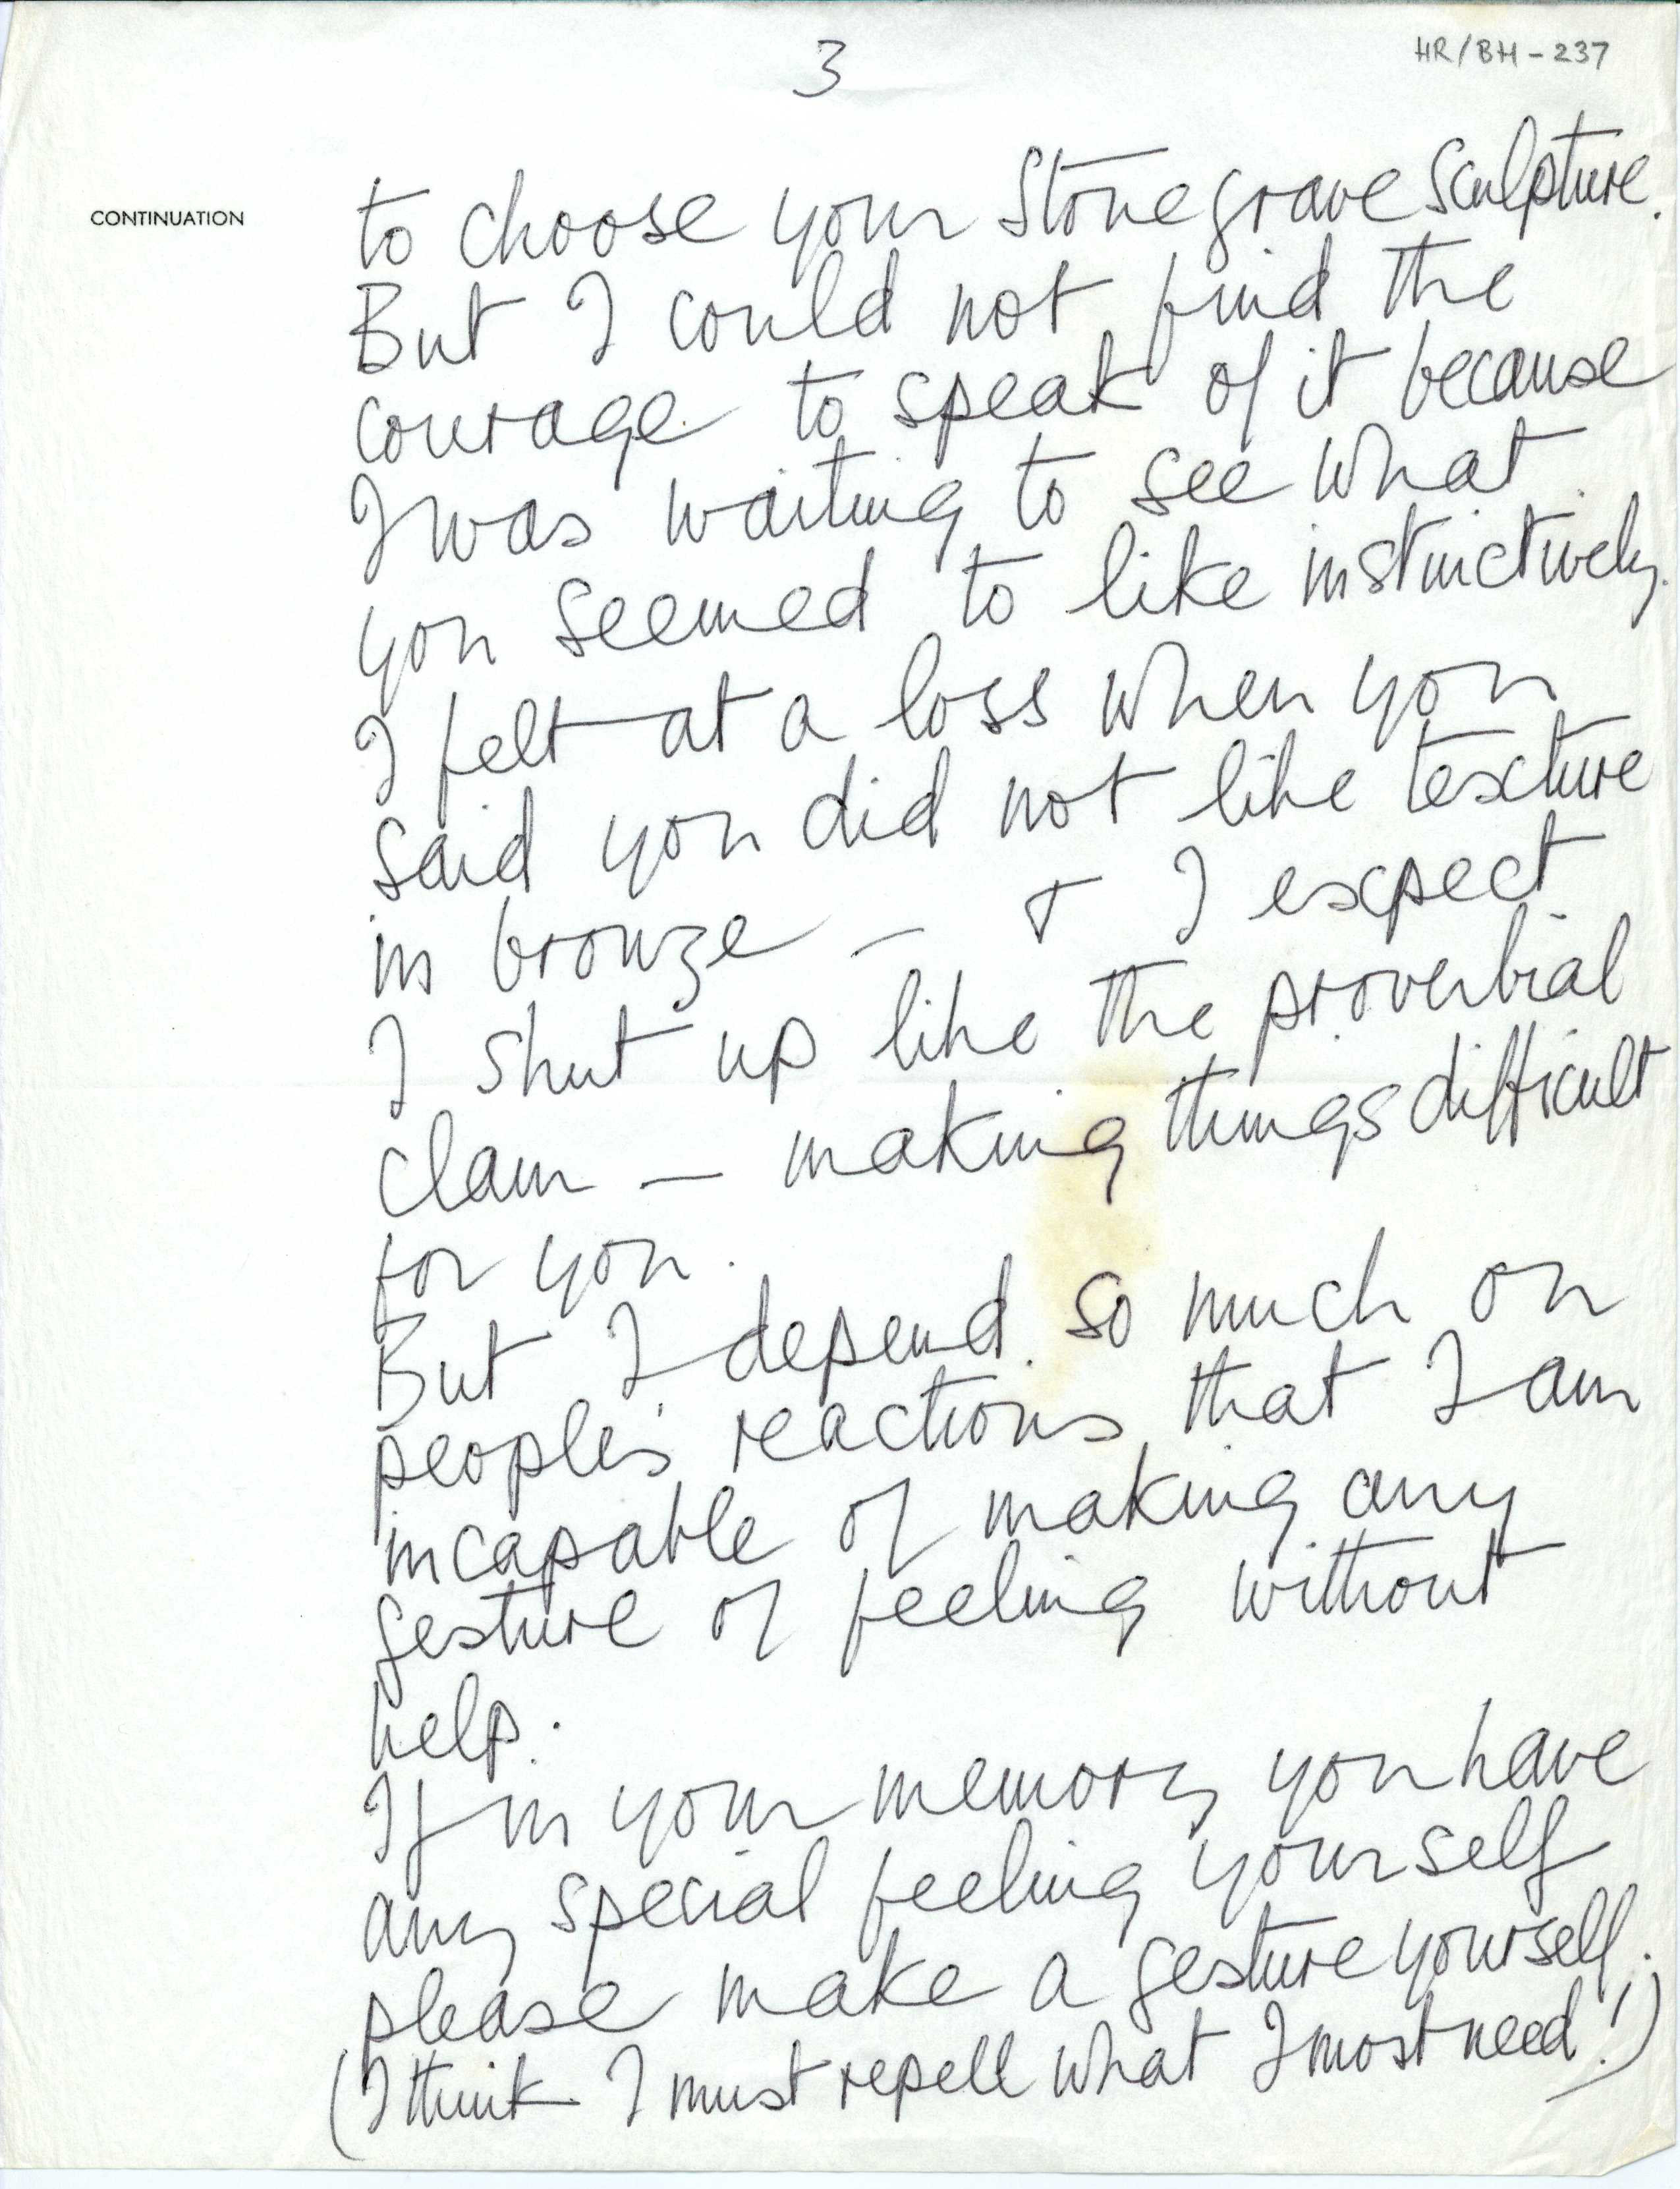 3
HR/BH-237
CONTINUATION
to choose your Stonegrave sculpture.
But I could not find the
courage to speak of it because
I was waiting to see what
you seemed to like instinctively.
I felt at a loss when you
said you did not like texture
in bronze — & I expect
I shut up like the proverbial
clam — making things difficult
for you.
But I depend so much on
people's reactions that I am
incapable of making any
gesture of feeling without
help.
If in your memory you have
any special feeling yourself
please make a gesture yourself.
(I think I must repell what I most need!)